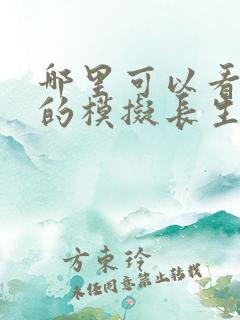 哪里可以看
的模拟长生
方束玲
未经同意禁止转载